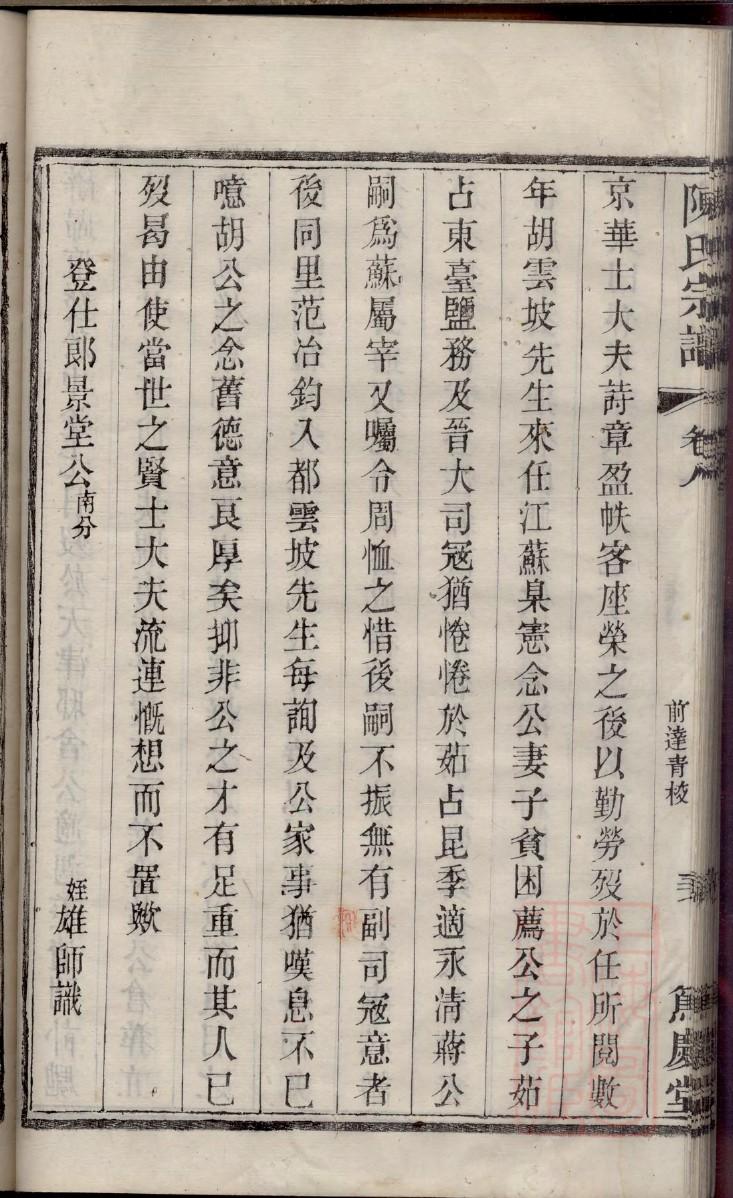 陳氏宗譜 卷八 前達青棱 篤慶堂
京華士大夫詩章盈帙客座榮之後以勤勞歿於任所閱數
年胡雲坡先生來任江蘇臬憲念公妻子貧困薦公之子茹
占東臺鹽務及晉大司冦猶惓惓於茹占昆季適永清蔣公
嗣爲蘇屬宰又囑令周恤之惜後嗣不振無有副司冦意者
後同里范冶鈞入都雲坡先生每詢及公家事猶嘆息不已
噫胡公之念舊德意良厚矣抑非公之才有足重而其人已
歿曷由使當世之賢士大夫流連慨想而不置歟
姪雄師識
登仕郎景堂公南分